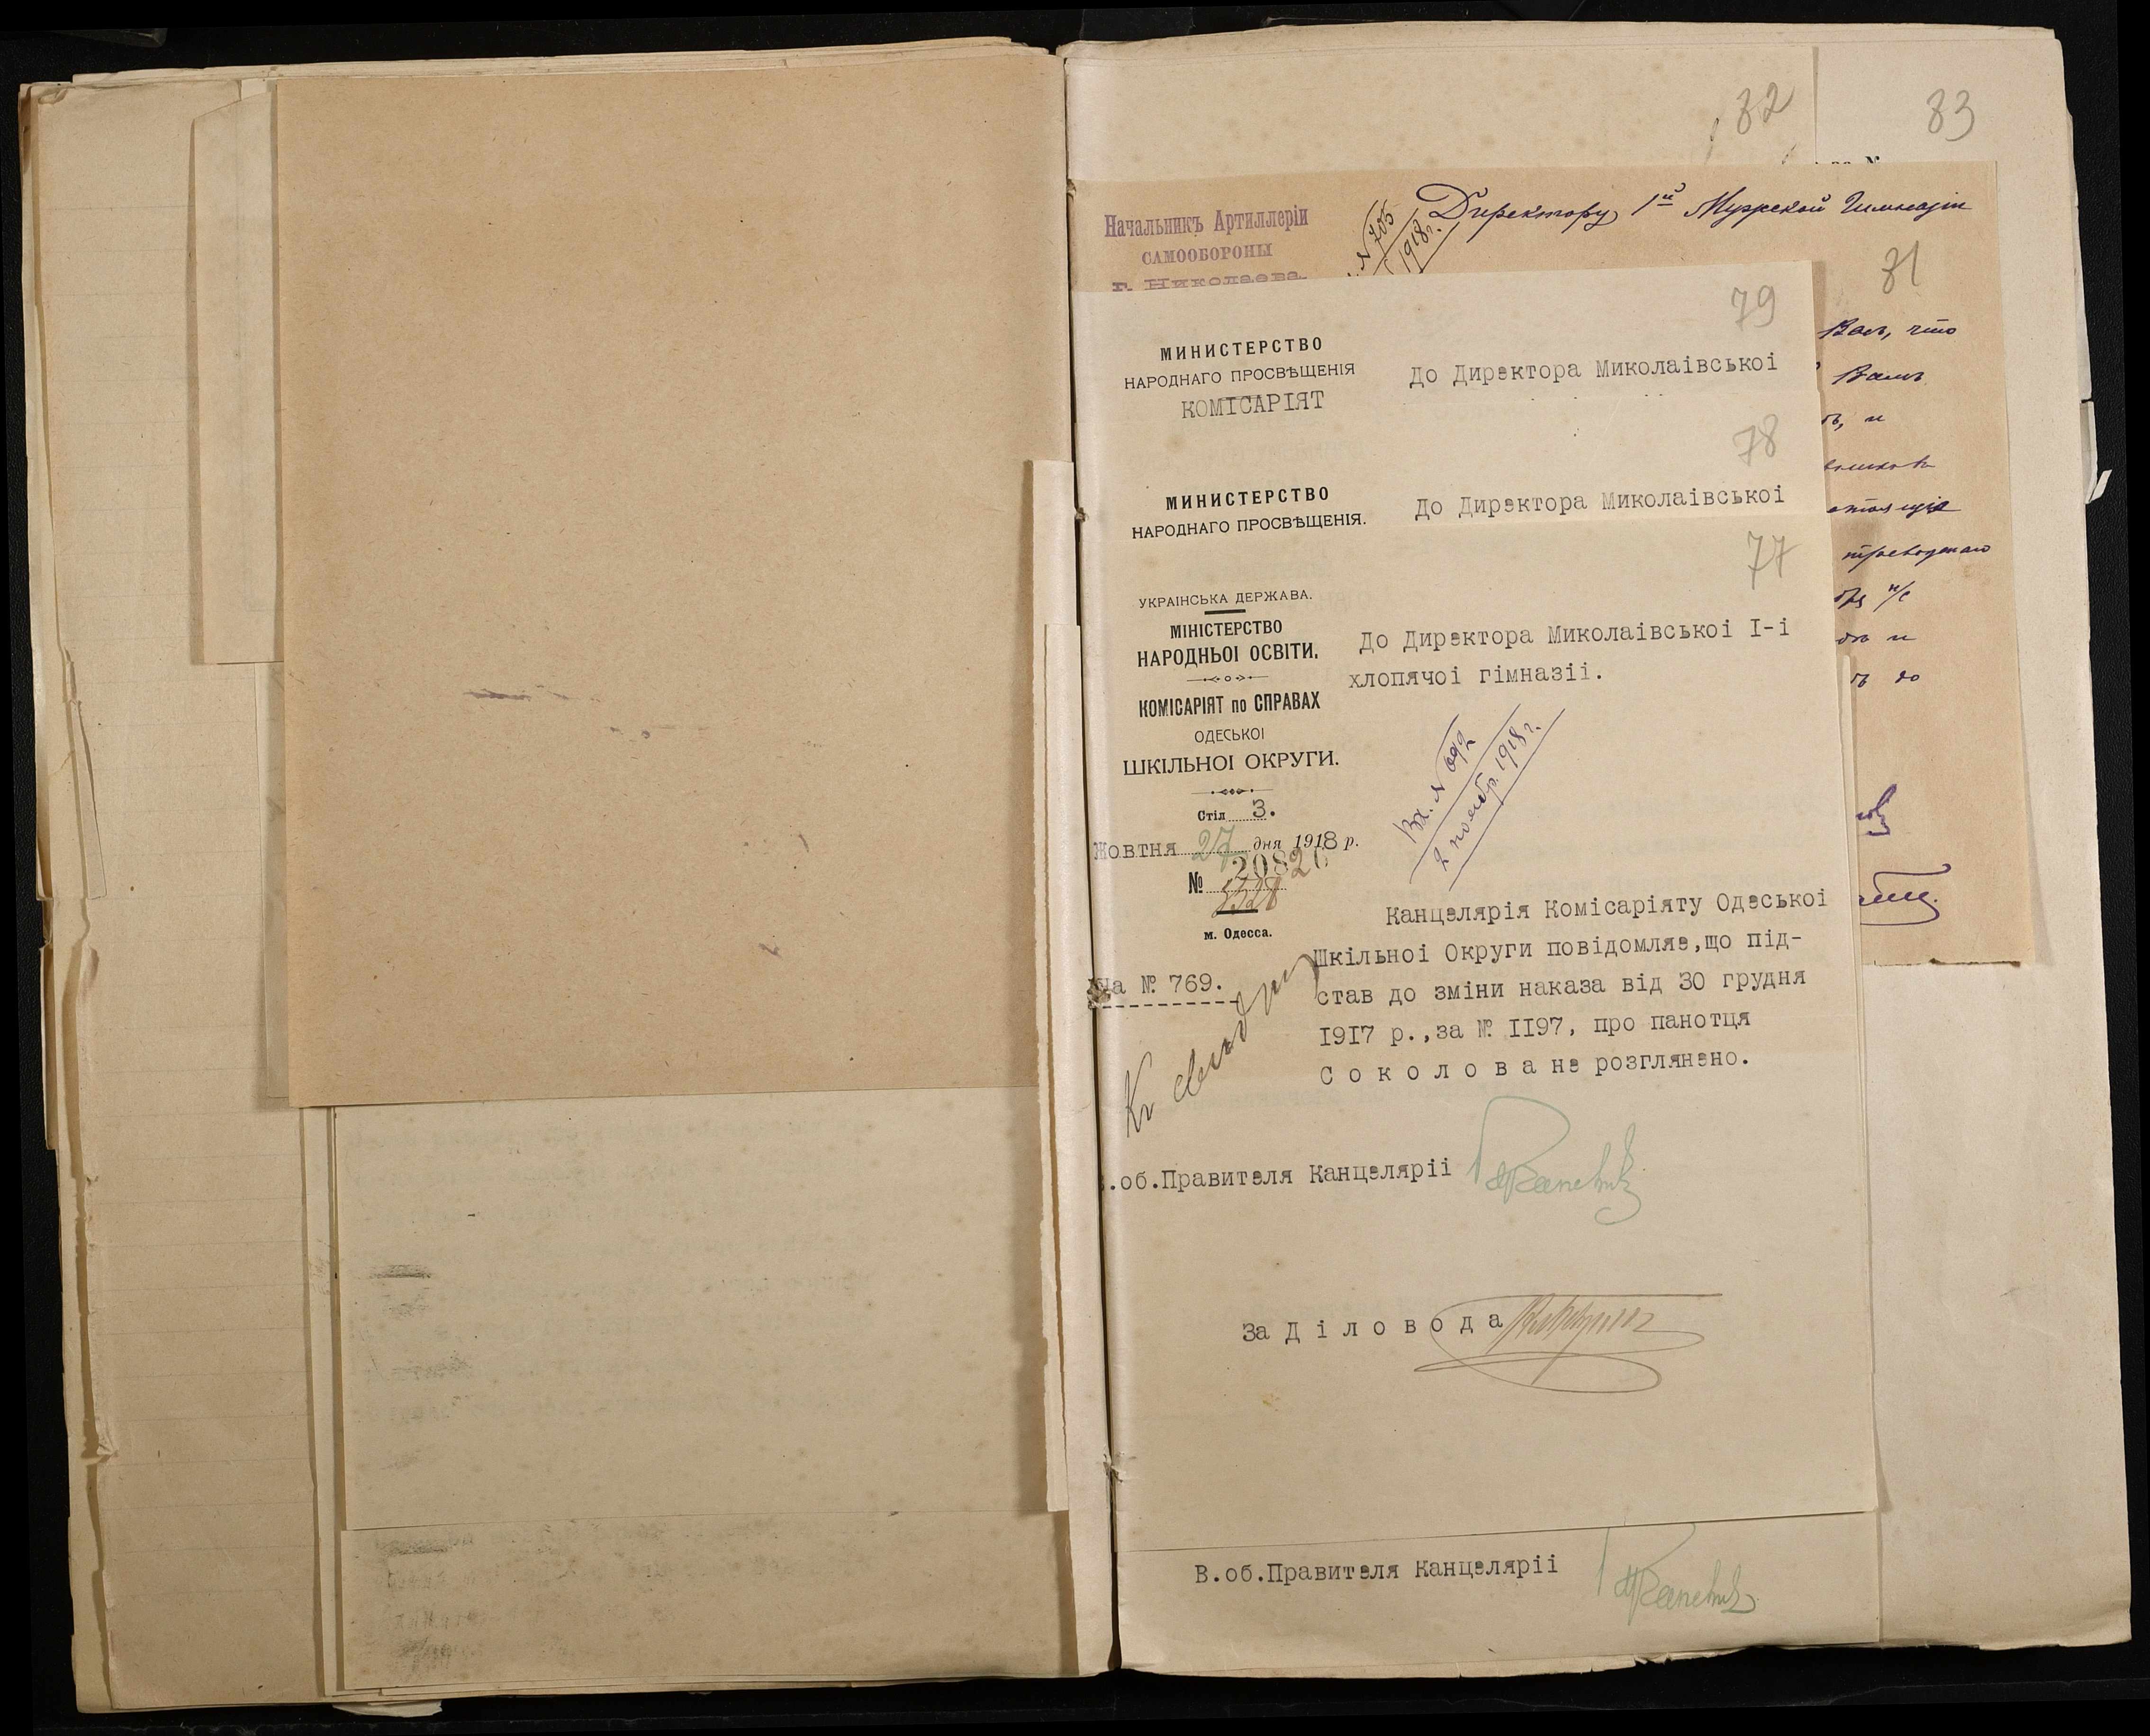 82
83
Начальникъ Артиллеріи
САМООБОРОНЫ
г. Николаева
№ 705
1918 г.
Директору 1й Мужской Гимназіи
81
Вамъ, что
Вамъ
и
до
79
МИНИСТЕРСТВО
НАРОДНАГО ПРОСВѢЩЕНІЯ
КОМІСАРІЯТ
До Директора Миколаівськоі
78
МИНИСТЕРСТВО
НАРОДНАГО ПРОСВѢЩЕНІЯ.
До Директора Миколаівськоі
77
УКРАІНСЬКА ДЕРЖАВА.
МІНІСТЕРСТВО
НАРОДНЬОІ ОСВІТИ.
КОМІСАРІЯТ по СПРАВАХ
ОДЕСЬКОІ
ШКІЛЬНОІ ОКРУГИ.
Стіл 3.
Жовтня 27 дня 1918 р.
20826
№ 5528
м. Одесса.
На № 769.
До Директора Миколаівськоі І-і
хлопячоі гімназіі.
Вх. № 692
2 ноябр. 1918 г.
Канцелярія Комісаріяту Одеськоі
Шкільноі Округи повідомляе,що під-
став до зміни наказа від 30 грудня
1917 р.,за № ІІ97, про панотця
С о к о л о в а не розглянено.
.об.Правителя Канцеляріі
За Д і л о в о д а
В.об.Правителя Канцеляріі